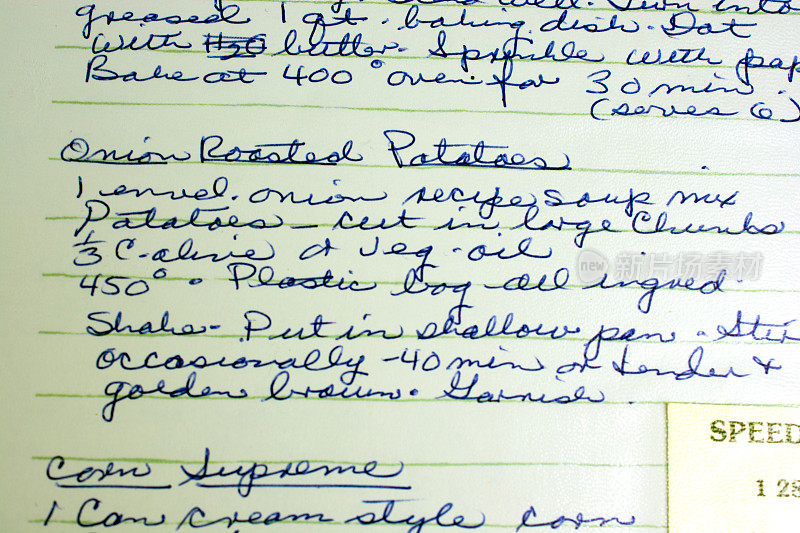 greased 1 qt. baking dish. Dot
with H20 butter. Sprinkle with pap
Bake at 400° oven for 30 min.
(serves 6)
Onion Roasted Potatoes
1 envel. onion recipe soup mix
Potatoes - cut in large chunks
1/3 C. olive or veg. oil
450° . Plastic bag - all ingred.
Shake - Put in shallow pan. Stir
occasionally - 40 min or tender &
golden brown. Garnish.
Corn Supreme
1 Can cream style corn
SPEED
1 28
new 新片场素材